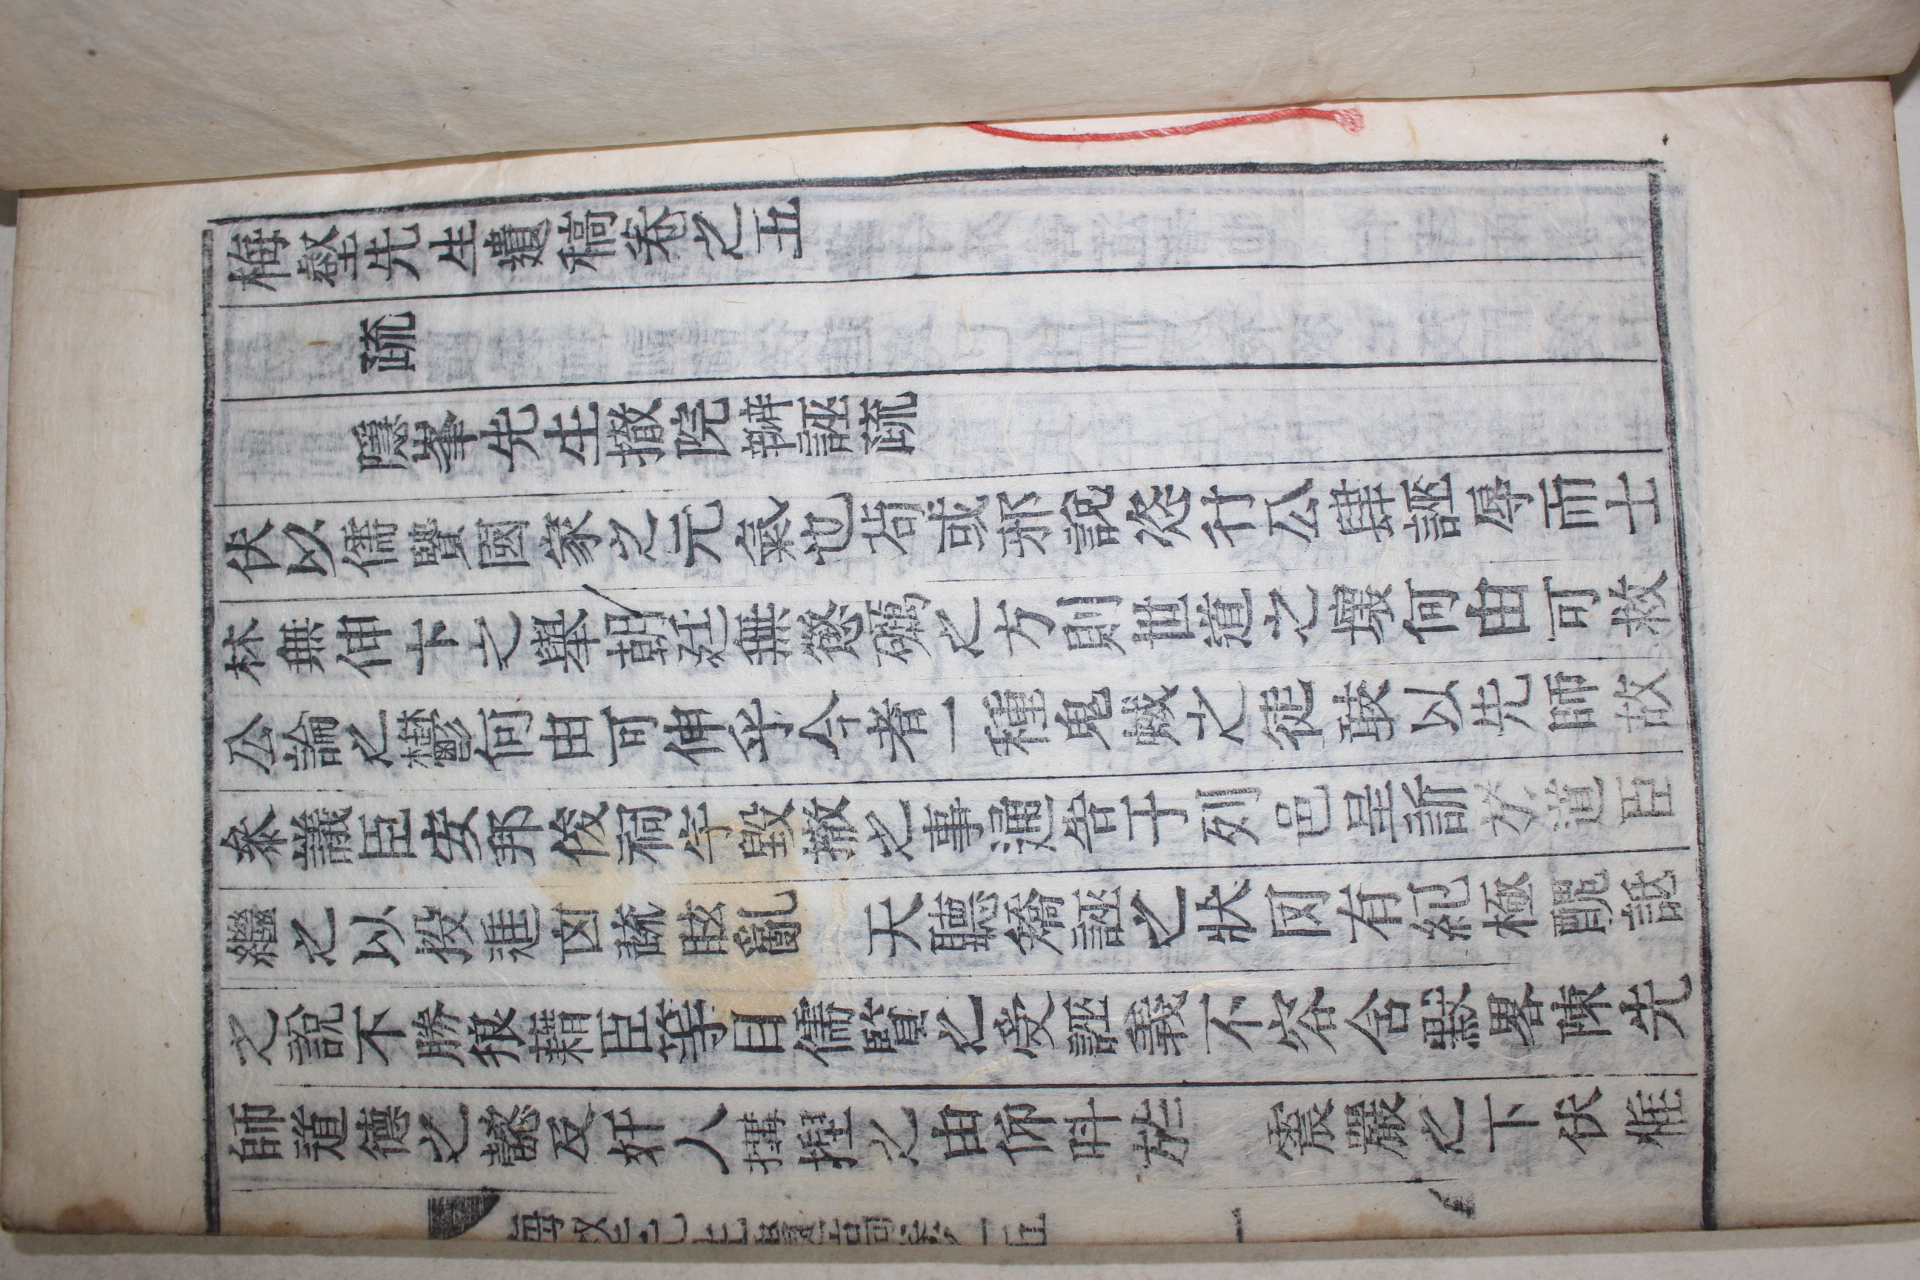 梅壑先生遺稿卷之五
疏
隱峯先生撤院辨誣疏
伏以儒賢國家之元氣也苟或邪說恣行厶肆誣辱而士
林無伸卞之擧朝廷無懲礪之方則世道之壞何由可救
公論之鬱何由可伸乎今者一種鬼蜮之徒敢以先師故
叅議臣安邦俊祠宇毁撤之事通告于列邑呈訴於道臣
繼之以投進凶疏眩亂 天聽矯誣之狀罔有紀極醜詆
之說不勝狼藉臣等目儒賢之受誣義不容含默畧陳先
師道德之懿及奸人搆捏之由仰呌於 崇嚴之下伏惟